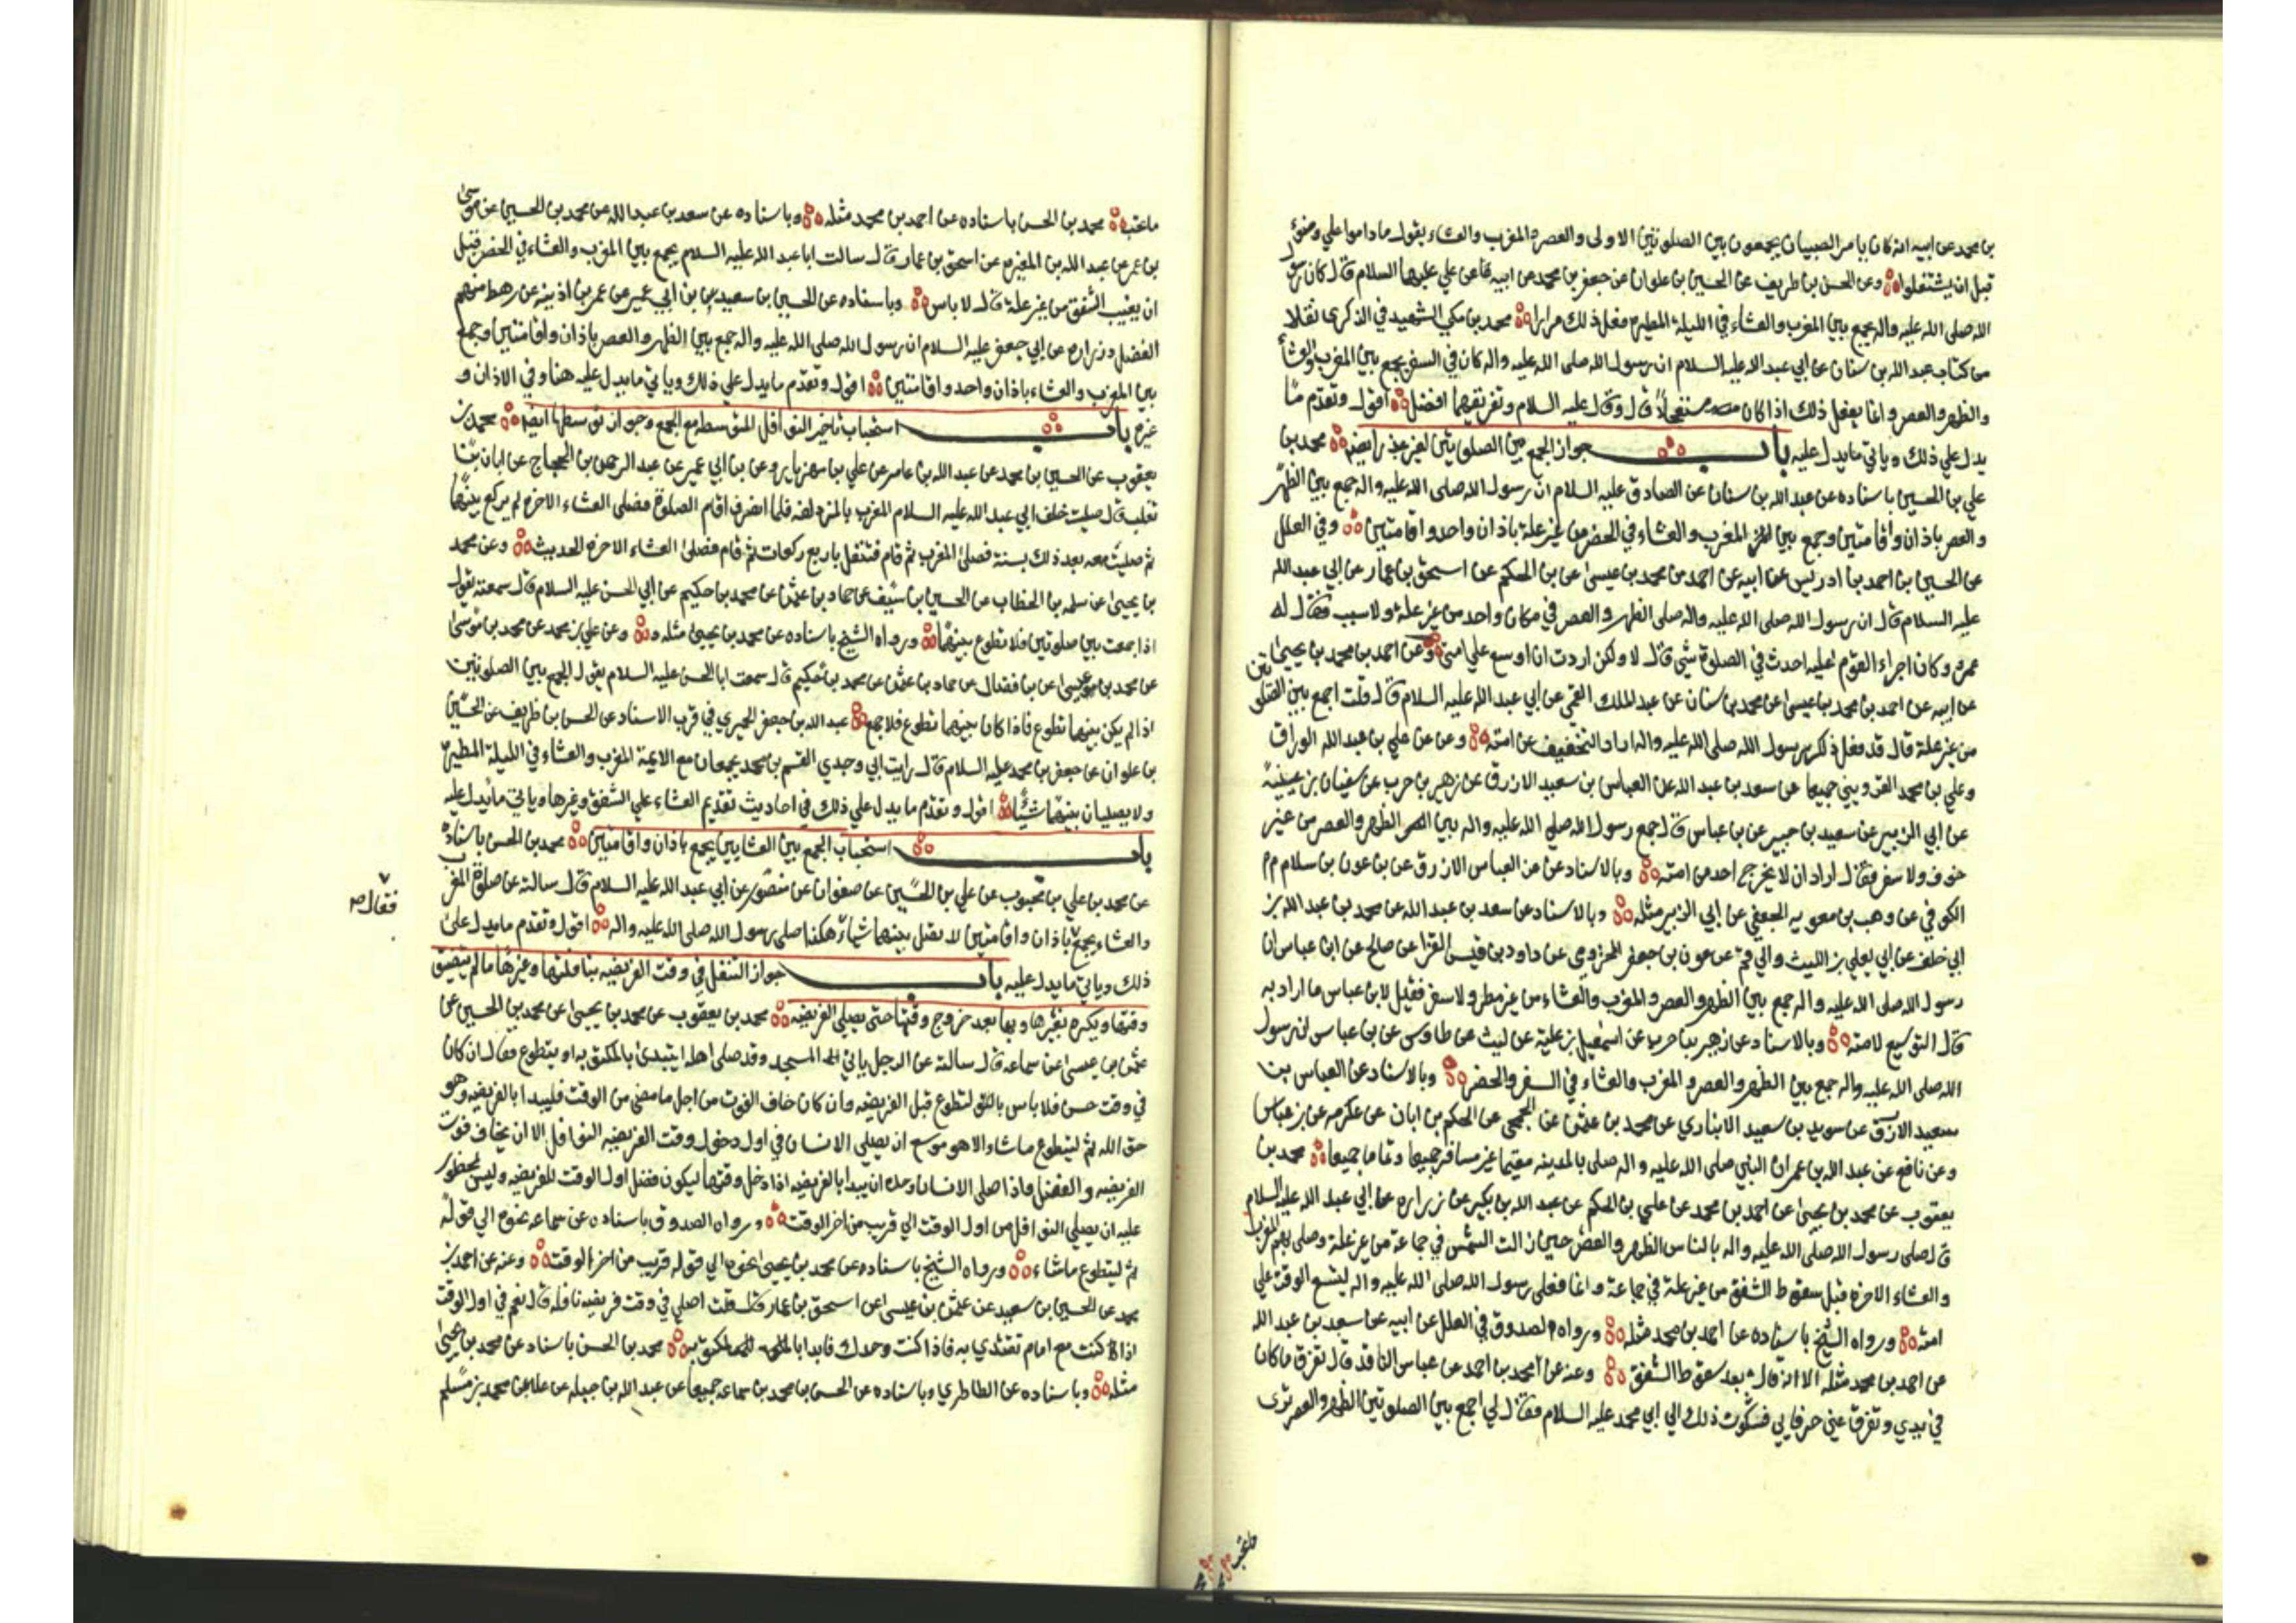 بن محمد عن ابيه انه كان يامر الصبيان يجمعون بين الصلوتين الاولى والعصر والمغرب والعشاء يقول ما داموا على وضوء
قبل ان يشتغلوا وعن الحسن بن ظريف عن الحسين بن علوان عن جعفر بن محمد عن ابيه عن علي عليهما السلام قال كان رسول
الله صلى الله عليه واله يجمع بين المغرب والعشاء في الليلة المطيرة فعل ذلك مرارا محمد بن مكي الشهيد في الذكرى نقلا
من كتاب عبد الله بن سنان عن ابي عبد الله عليه السلام ان رسول الله صلى الله عليه واله كان في السفر يجمع بين المغرب والعشا
والظهر والعصر وانما يفعل ذلك اذا كان مستعجلا قال وقال عليه السلام وتفريقهما افضل اقول وتقدم ما
يدل علي ذلك وياتي ما يدل عليه باب جواز الجمع بين الصلوتين لغير عذر ايضا محمد بن
علي بن الحسين باسناده عن عبد الله بن سنان عن الصادق عليه السلام ان رسول الله صلى الله عليه واله جمع بين الظهر
والعصر باذان واقامتين وجمع بين المغرب والعشاء في الحضر من غير علة باذان واحد واقامتين وفي العلل
عن الحسين بن احمد بن ادريس عن ابيه عن احمد بن محمد بن عيسى عن بن الحكم عن اسحق بن عمار عن ابي عبد الله
عليه السلام قال ان رسول الله صلى الله عليه واله صلى الظهر والعصر في مكان واحد من غير علة ولا سبب فقال له
عمر وكان اجراء القوم عليه احدث في الصلوة شي قال لا ولكن اردت ان اوسع علي امتي وعن احمد بن محمد بن يحيى
عن ابيه عن احمد بن محمد بن عيسى عن محمد بن سنان عن عبد الملك القمي عن ابي عبد الله عليه السلام قال قلت اجمع بين الصلوتين
من غير علة قال قد فعل ذلك رسول الله صلى الله عليه واله اراد التخفيف عن امته وعن علي بن عبد الله الوراق
وعلي بن محمد القزويني جميعا عن سعد بن عبد الله عن العباس بن سعيد الازرق عن زهير بن حرب عن سفيان بن عيينة
عن ابي الزبير عن سعيد بن جبير عن بن عباس قال جمع رسول الله صلي الله عليه واله بين الظهر والعصر من غير
خوف ولا سفر فقال اراد ان لا يحرج احد من امته وبالاسناد عن العباس الازرق عن بن عون بن سلام
الكوفي عن وهب بن معويه الجعفي عن ابي الزبير مثله وبالاسناد عن سعد بن عبد الله عن محمد بن عبد الله بن
ابي خلف عن ابي يعلي بن الليث والي قم عن عون بن جعفر المخزومي عن داود بن قيس الفرا عن صالح عن ابن عباس ان
رسول الله صلى الله عليه واله جمع بين الظهر والعصر والمغرب والعشاء من غير مطر ولا سفر فقيل لابن عباس ما اراد به
قال التوسيع لامته وبالاسناد عن زهير بن حرب عن اسمعيل بن علية عن ليث عن طاوس عن بن عباس ان رسول
الله صلى الله عليه واله جمع بين الظهر والعصر والمغرب والعشاء في السفر والحضر وبالاسناد عن العباس بن
سعيد الازرق عن سويد بن سعيد الانباري عن محمد بن عثمن عن الجمحي عن الحكم بن ابان عن عكرمه عن بن عباس
وعن نافع عن عبد الله بن عمر ان النبي صلى الله عليه واله صلى بالمدينه مقيما غير مسافر جميعا وتماما جميعا محمد بن
يعقوب عن محمد بن يحيى عن احمد بن محمد عن علي بن الحكم عن عبد الله بن بكير عن زراره عن ابي عبد الله عليه السلام
قال صلى رسول الله صلى الله عليه واله بالناس الظهر والعصر حين زالت الشمس في جماعة من غير علة وصلى بهم المغرب
والعشاء الاخرة قبل سقوط الشفق من غير علة في جماعة وانما فعل رسول الله صلى الله عليه واله ليتسع الوقت علي
امته ورواه الشيخ باسناده عن احمد بن محمد مثله ورواه الصدوق في العلل عن ابيه عن سعد بن عبد الله
عن احمد بن محمد مثله الا انه قال بعد سقوط الشفق وعنه عن محمد بن احمد عن عباس الناقد قال تفرق ما كان
في يدي وتفرق عني حرفايي فشكوت ذلك الي ابي محمد عليه السلام فقال لي اجمع بين الصلوتين الظهر والعصر ترى
ما تحب
ما تحب محمد بن الحسن باسناده عن احمد بن محمد مثله وباسناده عن سعد بن عبد الله عن محمد بن الحسين عن موسى
بن عمر عن عبد الله بن المغيره عن اسحق بن عمار قال سالت ابا عبد الله عليه السلام يجمع بين المغرب والعشاء في الحضر قبل
ان يغيب الشفق من غير علة قال لا باس وباسناده عن الحسين بن سعيد عن بن ابي عمير عن عمر بن اذينه عن رهط منهم
الفضيل وزراره عن ابي جعفر عليه السلام ان رسول الله صلى الله عليه واله جمع بين الظهر والعصر باذان واقامتين وجمع
بين المغرب والعشاء باذان واحد واقامتين اقول وتقدم ما يدل علي ذلك وياتي ما يدل عليه هنا وفي الاذان و
غيره باب استحباب تاخير النوافل المتوسطه مع الجمع وجواز توسطها ايضا محمد بن
يعقوب عن الحسين بن محمد عن عبد الله بن عامر عن علي بن مهزيار وعن بن ابي عمير عن عبد الرحمن بن الحجاج عن ابان بن
تغلب قال صليت خلف ابي عبد الله عليه السلام المغرب بالمزدلفه فلما انصرف اقام الصلوة فصلى العشاء الاخره لم يركع بينهما
ثم صليت معه بعد ذلك بسنة فصلى المغرب ثم قام فتنفل باربع ركعات ثم قام فصلى العشاء الاخرة الحديث وعن محمد
بن يحيى عن سلمه بن الخطاب عن الحسين بن سيف عن حماد بن عثمن عن محمد بن حكيم عن ابي الحسن عليه السلام قال سمعته يقول
اذا جمعت بين صلوتين فلا تطوع بينهما ورواه الشيخ باسناده عن محمد بن يحيى مثله وعن علي بن محمد عن محمد بن موسى
عن محمد بن عيسى عن بن فضال عن حماد بن عثمن عن محمد بن حكيم قال سمعت ابا الحسن عليه السلام يقول الجمع بين الصلوتين
اذا لم يكن بينهما تطوع فاذا كان بينهما تطوع فلا جمع عبد الله بن جعفر الحميري في قرب الاسناد عن الحسن بن ظريف عن الحسين
بن علوان عن جعفر بن محمد عليه السلام قال رايت ابي وجدي القسم بن محمد يجمعان مع الايمة المغرب والعشاء في الليلة المطيرة
ولا يصليان بينهما شيئا اقول وتقدم ما يدل علي ذلك في احاديث تقديم العشاء علي الشفق وغيرها وياتي ما يدل عليه
باب استحباب الجمع بين العشايين بجمع باذان واقامتين محمد بن الحسن باسناده
عن محمد بن علي بن محبوب عن علي بن الحسين عن صفوان عن منصور عن ابي عبد الله عليه السلام قال سالته عن صلوة المغرب
والعشاء بجمع باذان واقامتين لا تصل بينهما شيا هكذا صلى رسول الله صلى الله عليه واله اقول وتقدم ما يدل على
فقال ص
ذلك وياتي ما يدل عليه باب جواز التنفل في وقت الفريضه بنافلتها وغيرها ما لم يتضيق
وقتها ويكره بغيرها وبها بعد خروج وقتها حتى يصلي الفريضه محمد بن يعقوب عن محمد بن يحيى عن محمد بن الحسين عن
عثمن بن عيسى عن سماعه قال سالته عن الرجل ياتي المسجد وقد صلى اهله ايبتدئ بالمكتوبه او يتطوع فقال ان كان
في وقت حسن فلا باس بالتطوع قبل الفريضه وان كان خاف الفوت من اجل ما مضى من الوقت فليبدا بالفريضه وهو
حق الله ثم ليتطوع ما شاء الا هو موسع ان يصلي الانسان في اول دخول وقت الفريضه النوافل الا ان يخاف فوت
الفريضه والفضل اذا صلى الانسان وحده ان يبدا بالفريضه اذا دخل وقتها ليكون فضل اول الوقت للفريضه وليس بمحظور
عليه ان يصلي النوافل من اول الوقت الي قريب من اخر الوقت ورواه الصدوق باسناده عن سماعه نحوه الي قوله
ثم ليتطوع ما شاء ورواه الشيخ باسناده عن محمد بن يحيى نحوه الي قوله قريب من اخر الوقت وعنه عن احمد بن
محمد عن الحسين بن سعيد عن عثمن بن عيسى عن اسحق بن عمار قال قلت اصلي في وقت فريضه نافلة قال نعم في اول الوقت
اذا كنت مع امام تقتدي به فاذا كنت وحدك فابدا بالمكتوبه محمد بن الحسن باسناده عن محمد بن يحيى
مثله وباسناده عن الطاطري وباسناده عن الحسن بن محمد بن سماعه جميعا عن عبد الله بن جبله عن علا عن محمد بن مسلم